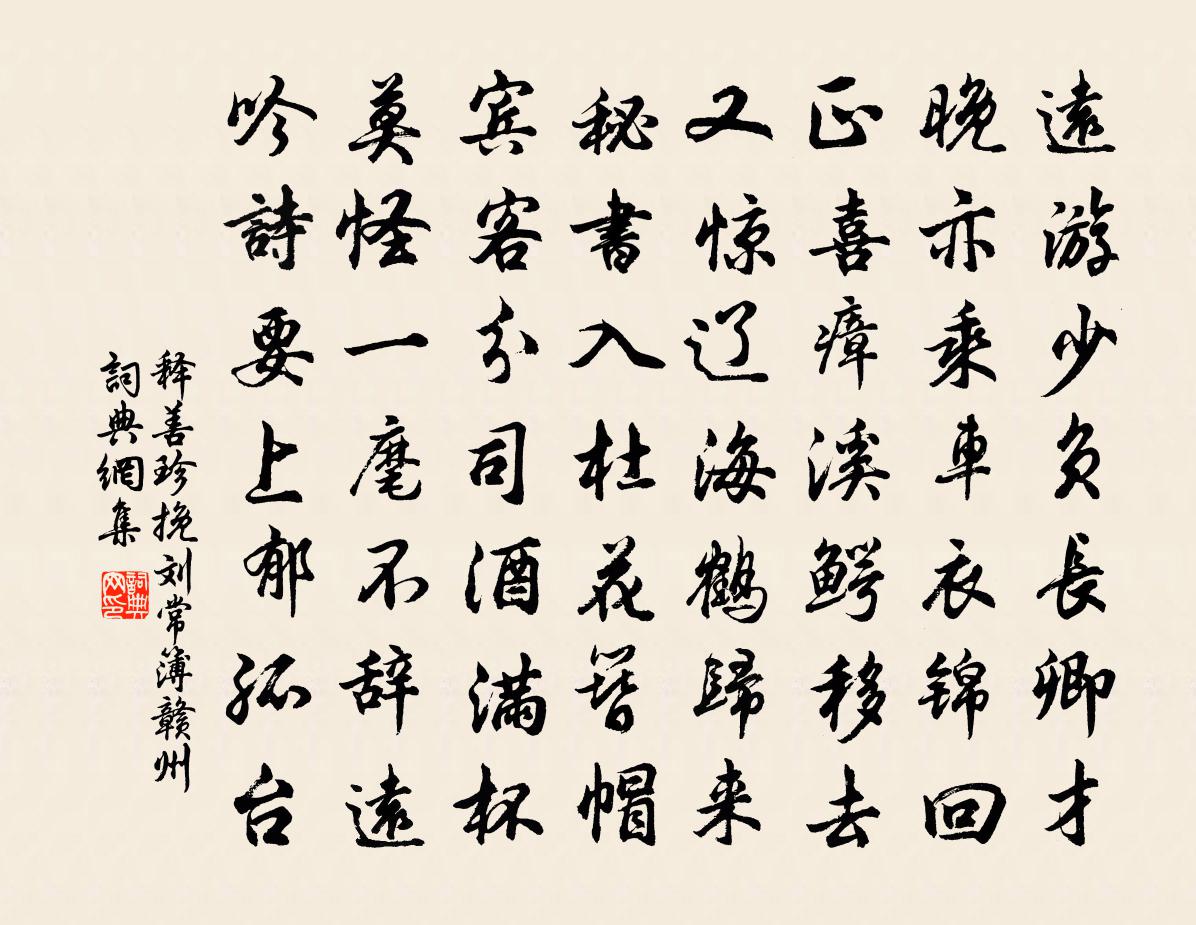 遠游少負長卿才
晚亦乘車衣锦回
正喜瘴溪鳄移去
又惊辽海鹤歸来
秘書入杜花簪帽
宾客分司酒满杯
莫怪一麾不辞遠
吟詩要上郁孤台
释善珍挽刘常簿赣州
詞典網集
詞典网印